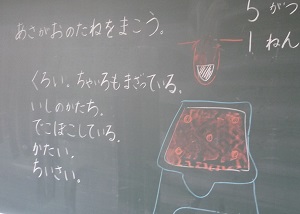 あさがおのたねをまこう。
くろい。ちゃいろもまざっている。
いしのかたち。
でこぼこしている。
かたい。
ちいさい。
5がつ
1ねん